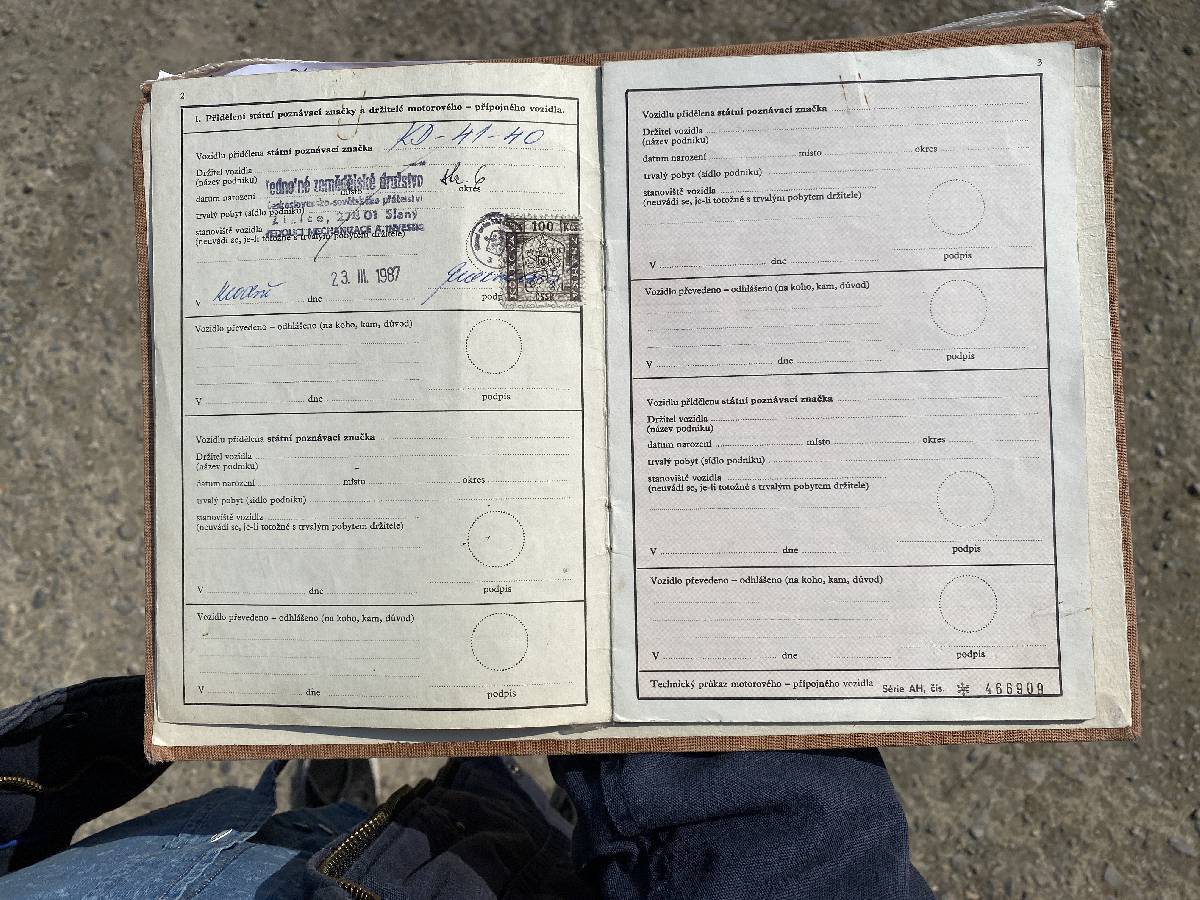 2
I. Přidělení státní poznávací značky a držitelé motorového – přípojného vozidla.
Vozidlu přidělena státní poznávací značka KD-41-40
Držitel vozidla
(název podniku)
Jednotné zemědělské družstvo
str. 6
datum narození místo okres
Československo-sovětského přátelství
trvalý pobyt (sídlo podniku)
274 01 Slaný
stanoviště vozidla
VEDOUCÍ MECHANIZACE A INVESTIC
(neuvádí se, je-li totožné s trvalým pobytem držitele)
100 Kčs
ČSSR
V Kladně dne 23. III. 1987 podpis
Vozidlo převedeno – odhlášeno (na koho, kam, důvod)
V dne podpis
Vozidlu přidělena státní poznávací značka
Držitel vozidla
(název podniku)
datum narození místo okres
trvalý pobyt (sídlo podniku)
stanoviště vozidla
(neuvádí se, je-li totožné s trvalým pobytem držitele)
V dne podpis
Vozidlo převedeno – odhlášeno (na koho, kam, důvod)
V dne podpis
3
Vozidlu přidělena státní poznávací značka
Držitel vozidla
(název podniku)
datum narození místo okres
trvalý pobyt (sídlo podniku)
stanoviště vozidla
(neuvádí se, je-li totožné s trvalým pobytem držitele)
V dne podpis
Vozidlo převedeno – odhlášeno (na koho, kam, důvod)
V dne podpis
Vozidlu přidělena státní poznávací značka
Držitel vozidla
(název podniku)
datum narození místo okres
trvalý pobyt (sídlo podniku)
stanoviště vozidla
(neuvádí se, je-li totožné s trvalým pobytem držitele)
V dne podpis
Vozidlo převedeno – odhlášeno (na koho, kam, důvod)
V dne podpis
Technický průkaz motorového – přípojného vozidla Série AH, čís. 466909